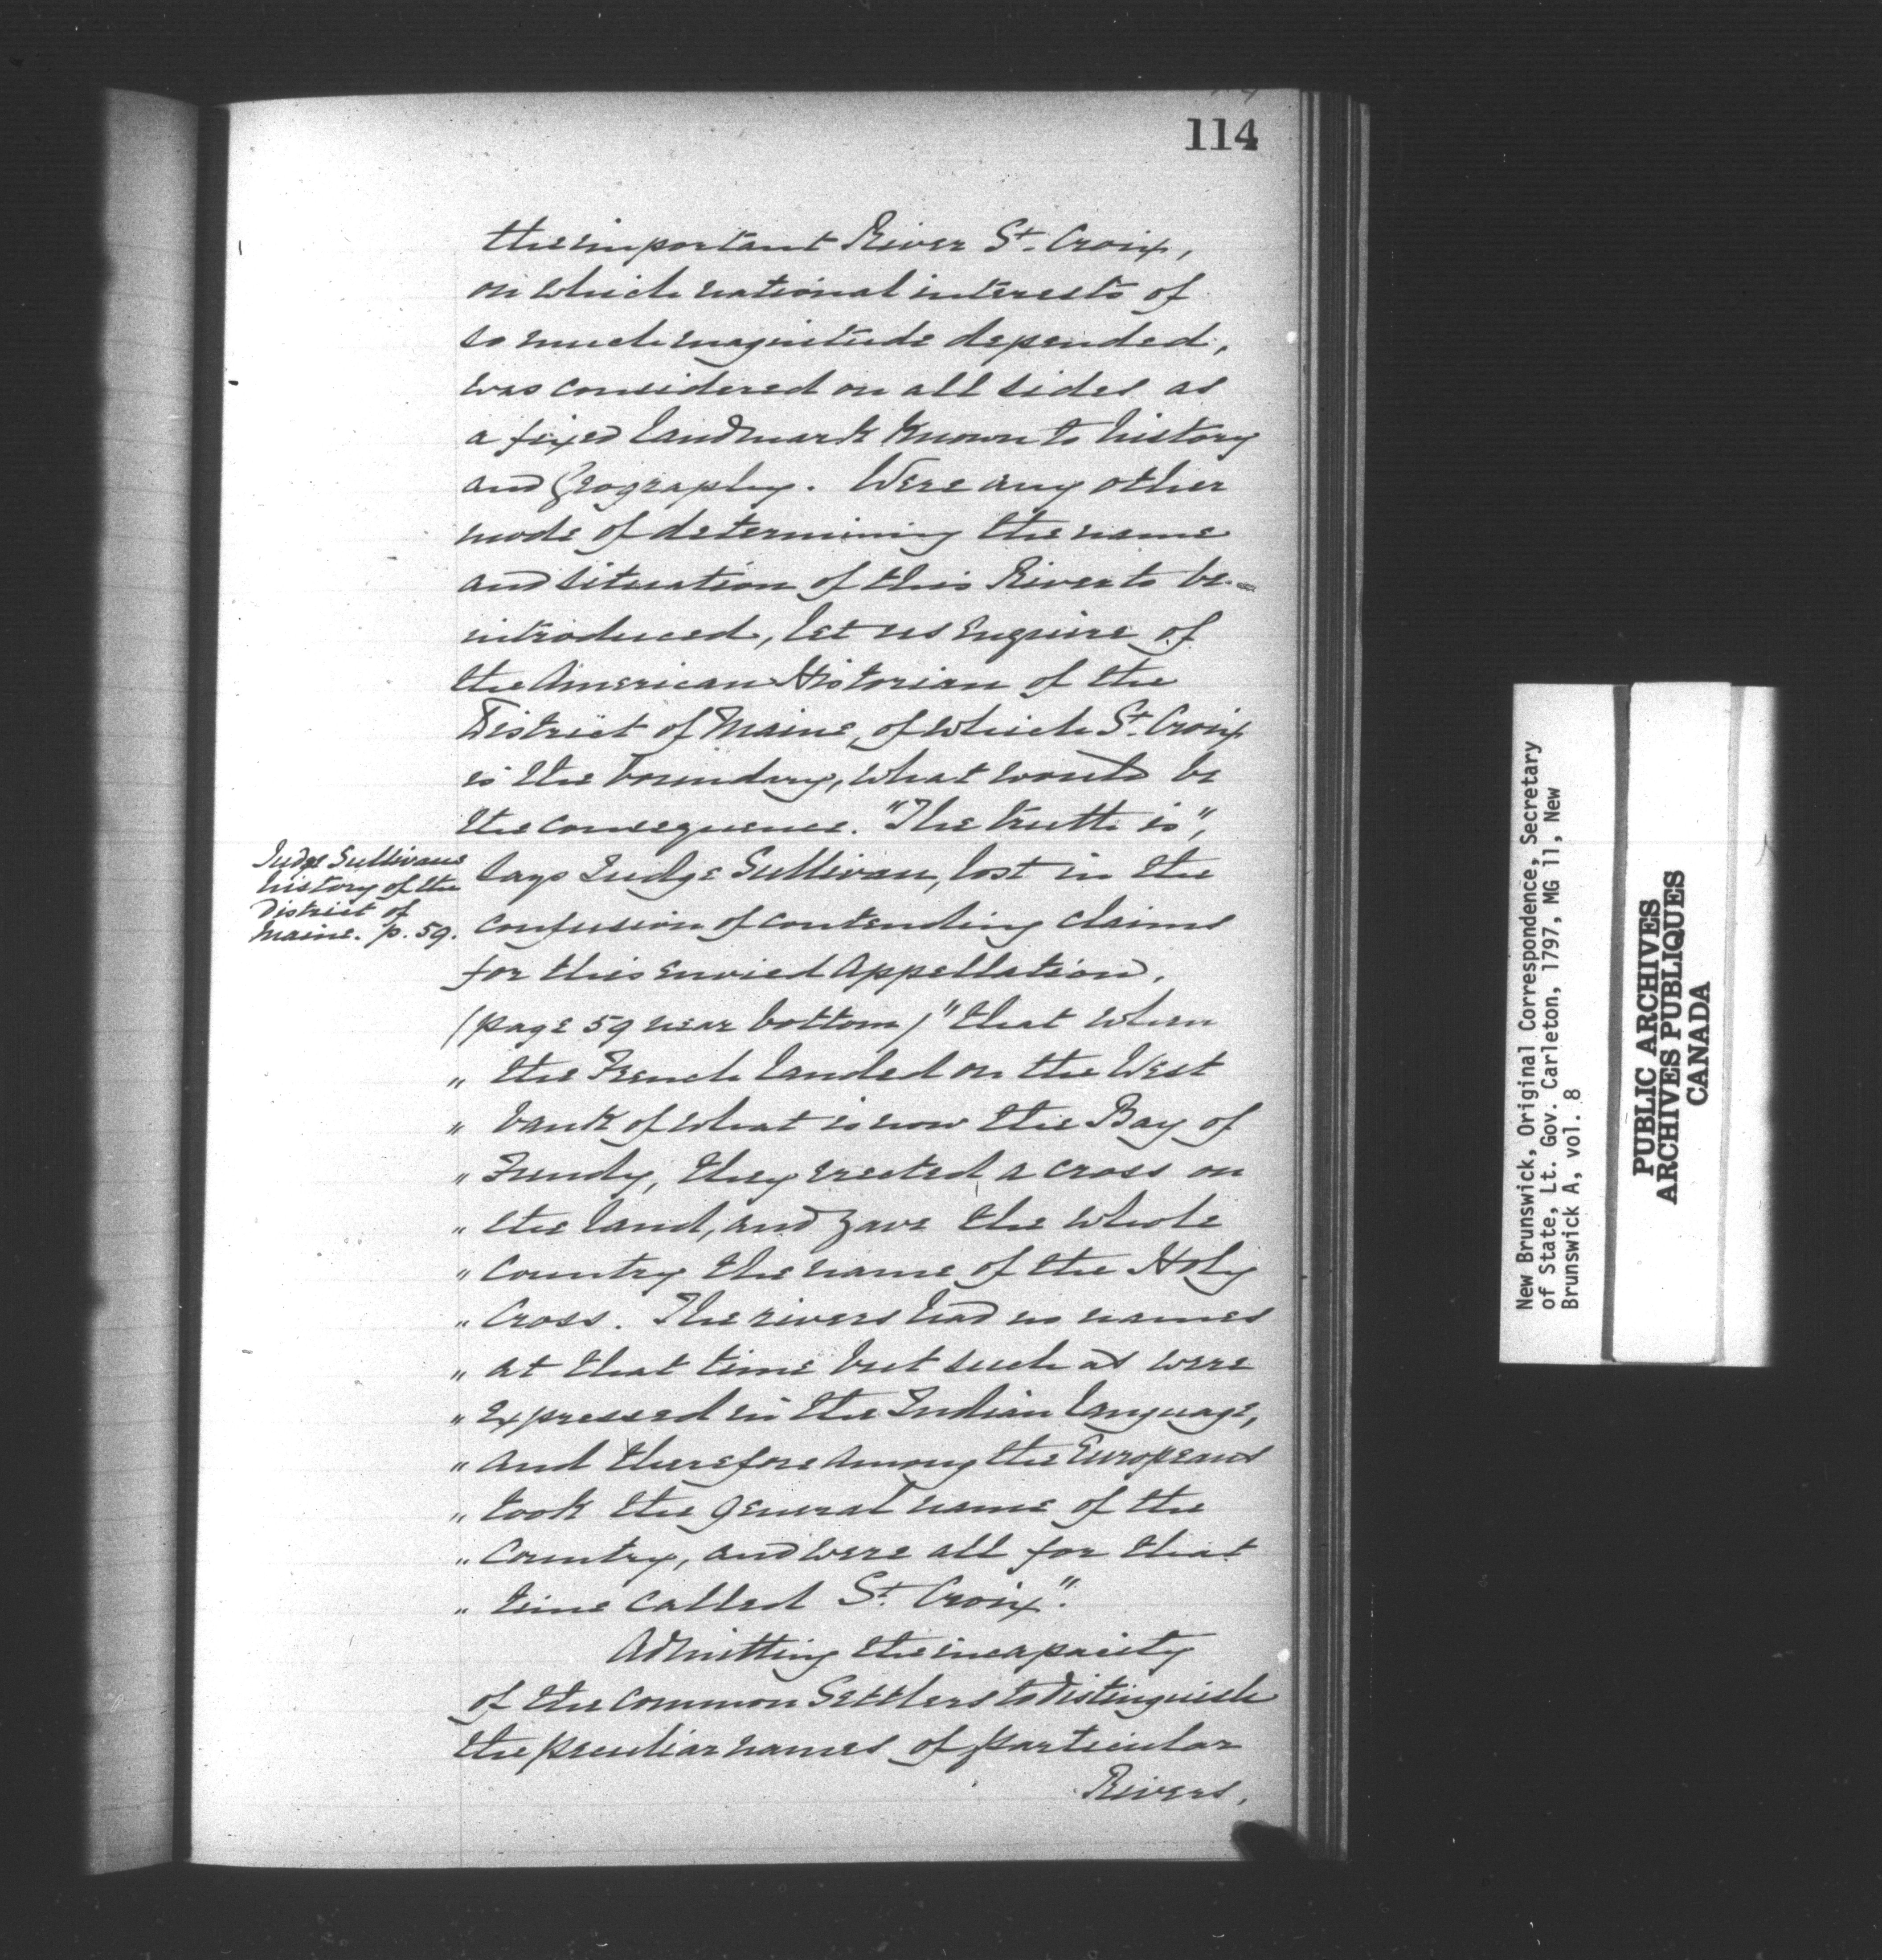 114
the important River St. Croix,
on which national interests of
so much magnitude depended,
was considered on all sides as
a fixed landmark known to history
and Geography. Were any other
mode of determining the name
and situation of this River to be
introduced, let us enquire of
the American Historian of the
District of Maine, of which St. Croix
is the boundary, what would be
the consequence. "The truth is",
Judge Sullivans
history of the
District of
Maine. p. 59.
says Judge Sullivan, lost in the
confusion of contending claims
for this envied appellation,
(page 59 near bottom) "that when
" the French landed on the West
" bank of what is now the Bay of
" Fundy, they erected a cross on
" the land, and gave the whole
" Country the name of the Holy
" Cross. The rivers had no names
" at that time but such as were
" expressed in the Indian language,
" and therefore among the Europeans
" took the general name of the
" Country, and were all for that
" time called St. Croix".
Admitting the incapacity
of the common Settlers to distinguish
the peculiar names of particular
Rivers,
New Brunswick, Original Correspondence, Secretary
of State, Lt. Gov. Carleton, 1797, MG 11, New
Brunswick A, vol. 8
PUBLIC ARCHIVES
ARCHIVES PUBLIQUES
CANADA